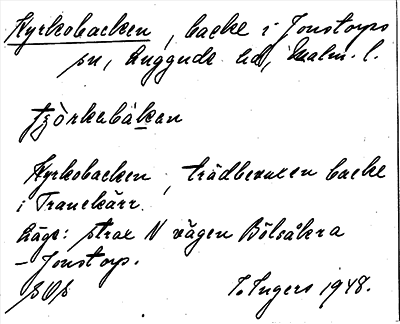 Kyrkobacken, backe i Jonstorps
sn, Luggude hd, Malm. l.
tjòrkabàkan
Kyrkobacken, trädbevuxen backe
i Tranekärr.
Läge: strax N vägen Bölsåkra
– Jonstorp.
I. Ingers 1948.